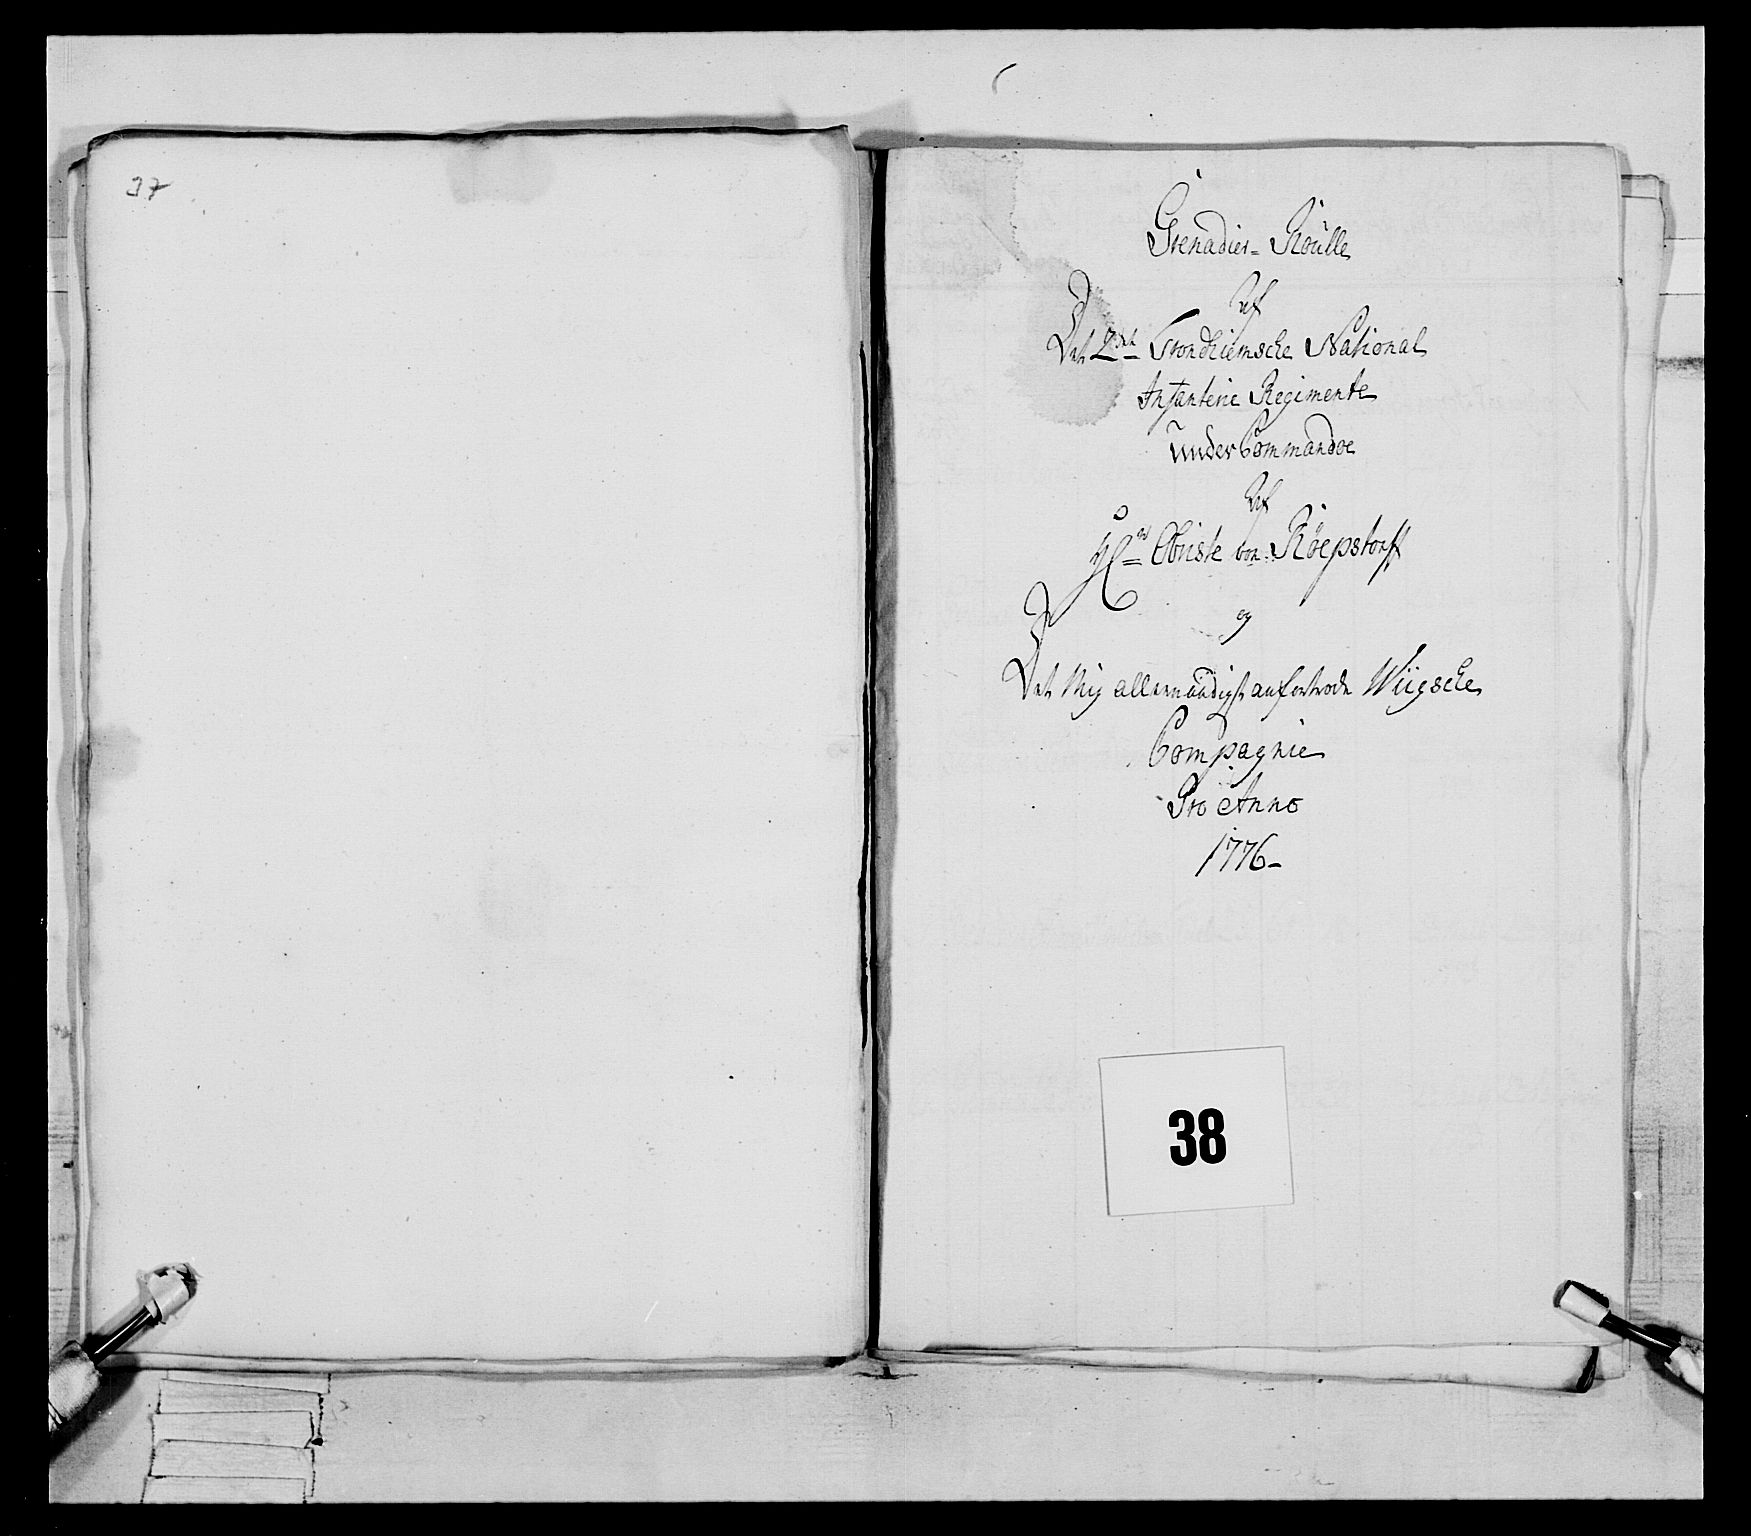 37
Grenadier=Roulle
Af
Det 2det Trondhiemsche National
Infanterie Regimente
under Commandoe
Af
Hr Obriste von Röepstorff
og
Det Mig allernaadigst anfortrode Wiigsche
Compagnie
Pro Anno
1776
38